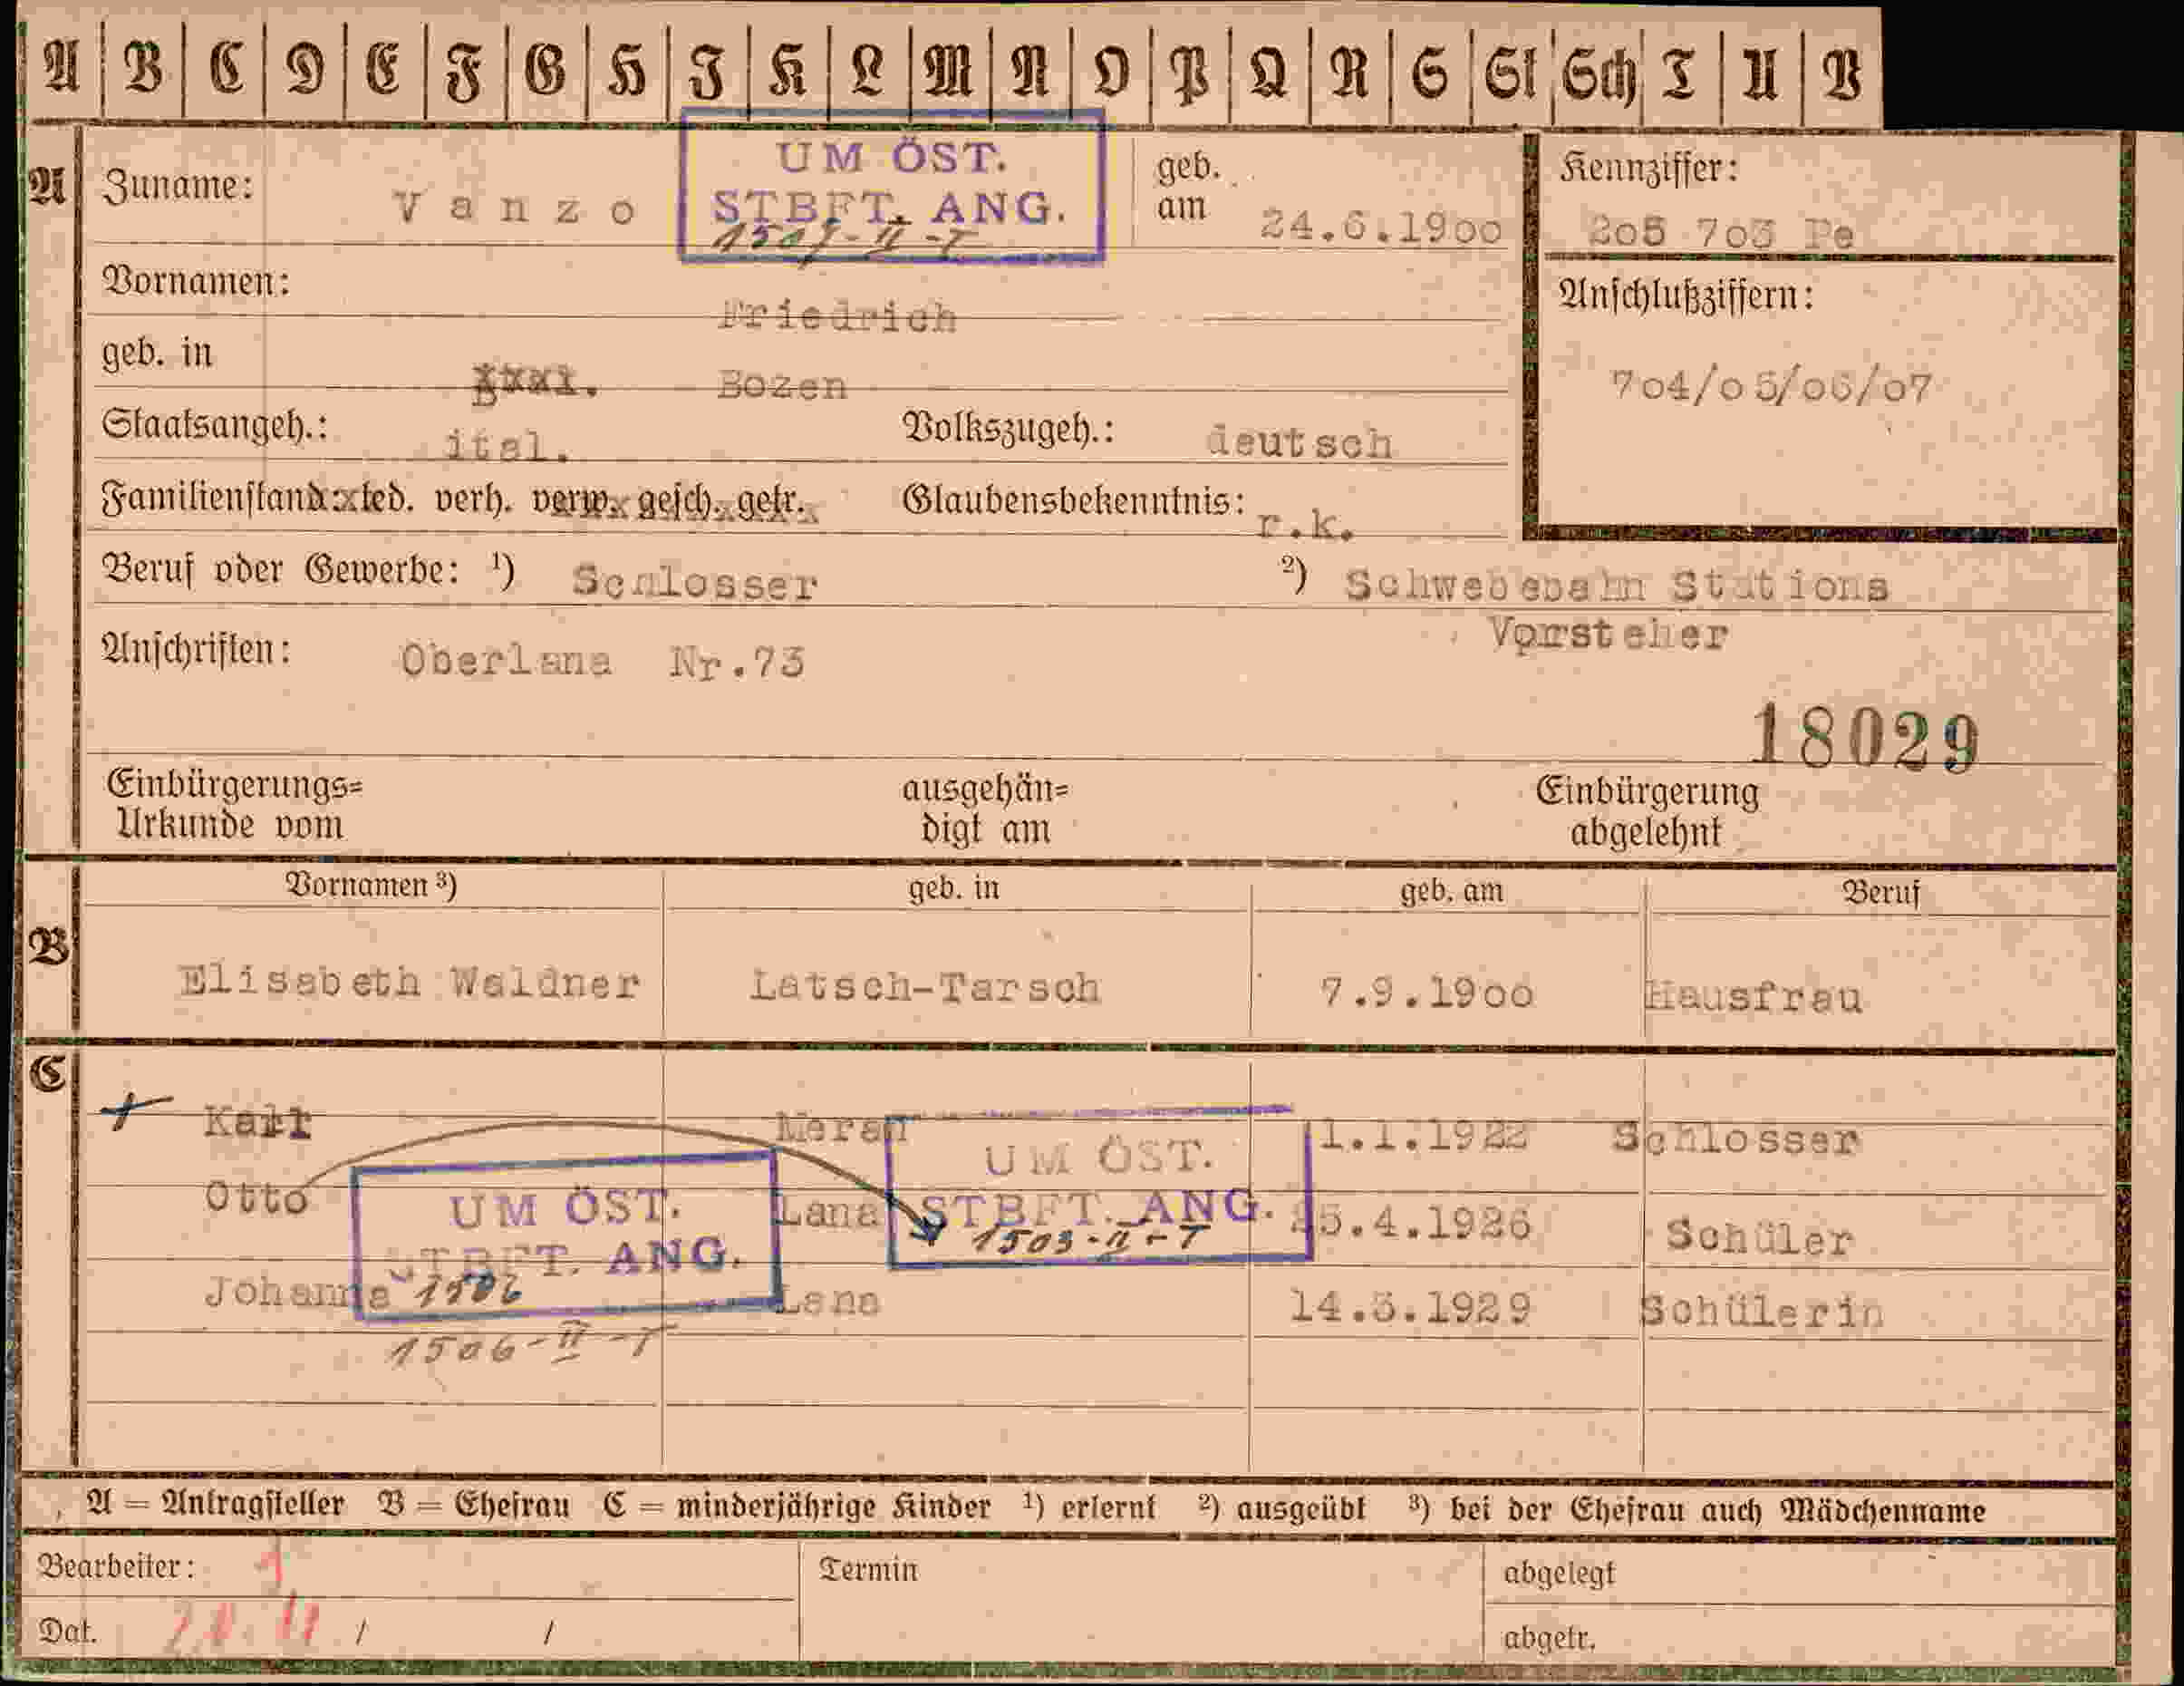 A B C D E F G H J K L M N O P Q R S St Sch T U V
A Zuname: Vanzo UM ÖST. STBFT. ANG. geb. am 24.6.1900 Kennziffer: 205 703 Pe
Vornamen: Friedrich
Anschlußziffern:
geb. in Bozen 704/05/06/07
Staatsangeh.: ital. Volkszugeh.: deutsch
Familienstand: led. verh. verw. gesch. getr. Glaubensbekenntnis: r.k.
Beruf oder Gewerbe: 1) Schlosser 2) Schwebebahn Stations
Vorsteher
Anschriften: Oberlana Nr.73
18029
Einbürgerungs= ausgehän= Einbürgerung
Urkunde vom digt am abgelehnt
Vornamen 3) geb. in geb. am Beruf
B
Elisabeth Waldner Latsch-Tarsch 7.9.1900 Hausfrau
C
Karl Meran 1.1.1922 Schlosser
UM ÖST.
Otto Lana STBFT. ANG. 25.4.1926 Schüler
1503-II-T
UM ÖST.
STBFT. ANG.
Johanna 1506 Lana 14.3.1929 Schülerin
1506-II-T
A = Antragsteller B = Ehefrau C = minderjährige Kinder 1) erlernt 2) ausgeübt 3) bei der Ehefrau auch Mädchenname
Bearbeiter: 1 Termin abgelegt
Dat. / / abgetr.